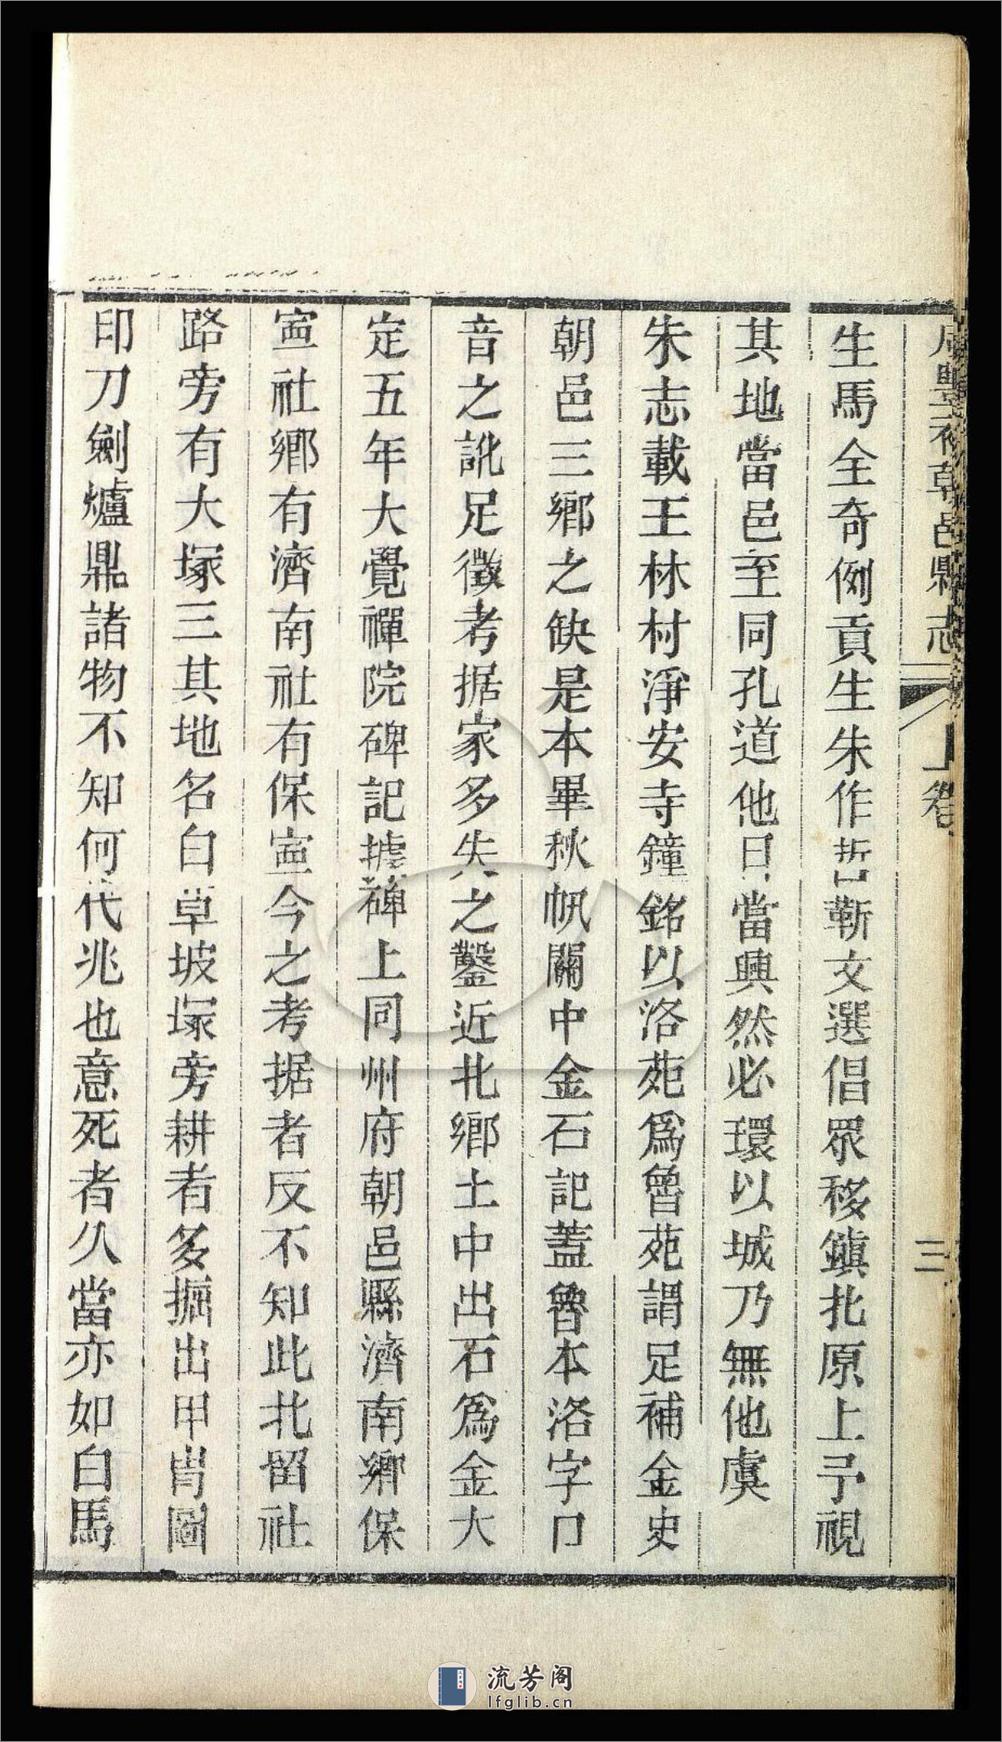 咸豐初朝邑縣志 上卷 三
生馬全奇例貢生朱作哲靳文選倡眾移鎮北原上予視
其地當邑至同孔道他日當興然必環以城乃無他虞
朱志載王林村淨安寺鐘銘以洛苑為魯苑謂足補金史
朝邑三鄉之缺是本畢秋帆關中金石記蓋魯本洛字口
音之訛足徵考据家多失之鑿近北鄉土中出石為金大
定五年大覺禪院碑記據碑上同州府朝邑縣濟南鄉保
寍社鄉有濟南社有保寍今之考据者反不知此北留社
路旁有大塚三其地名白草坡塚旁耕者多掘出甲冑圖
印刀劍爐鼎諸物不知何代兆也意死者久當亦如白馬
流芳阁
lfglib.cn